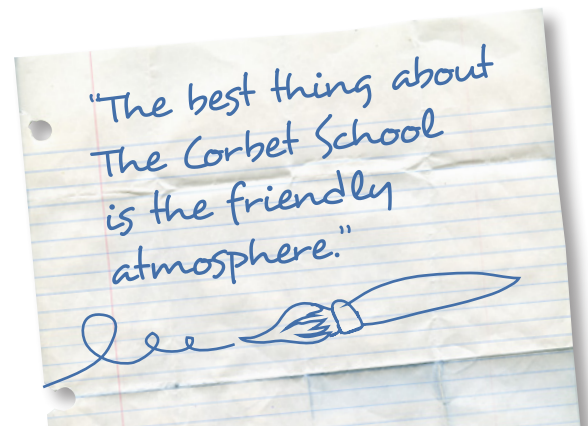 "The best thing about
The Corbet School
is the friendly
atmosphere."